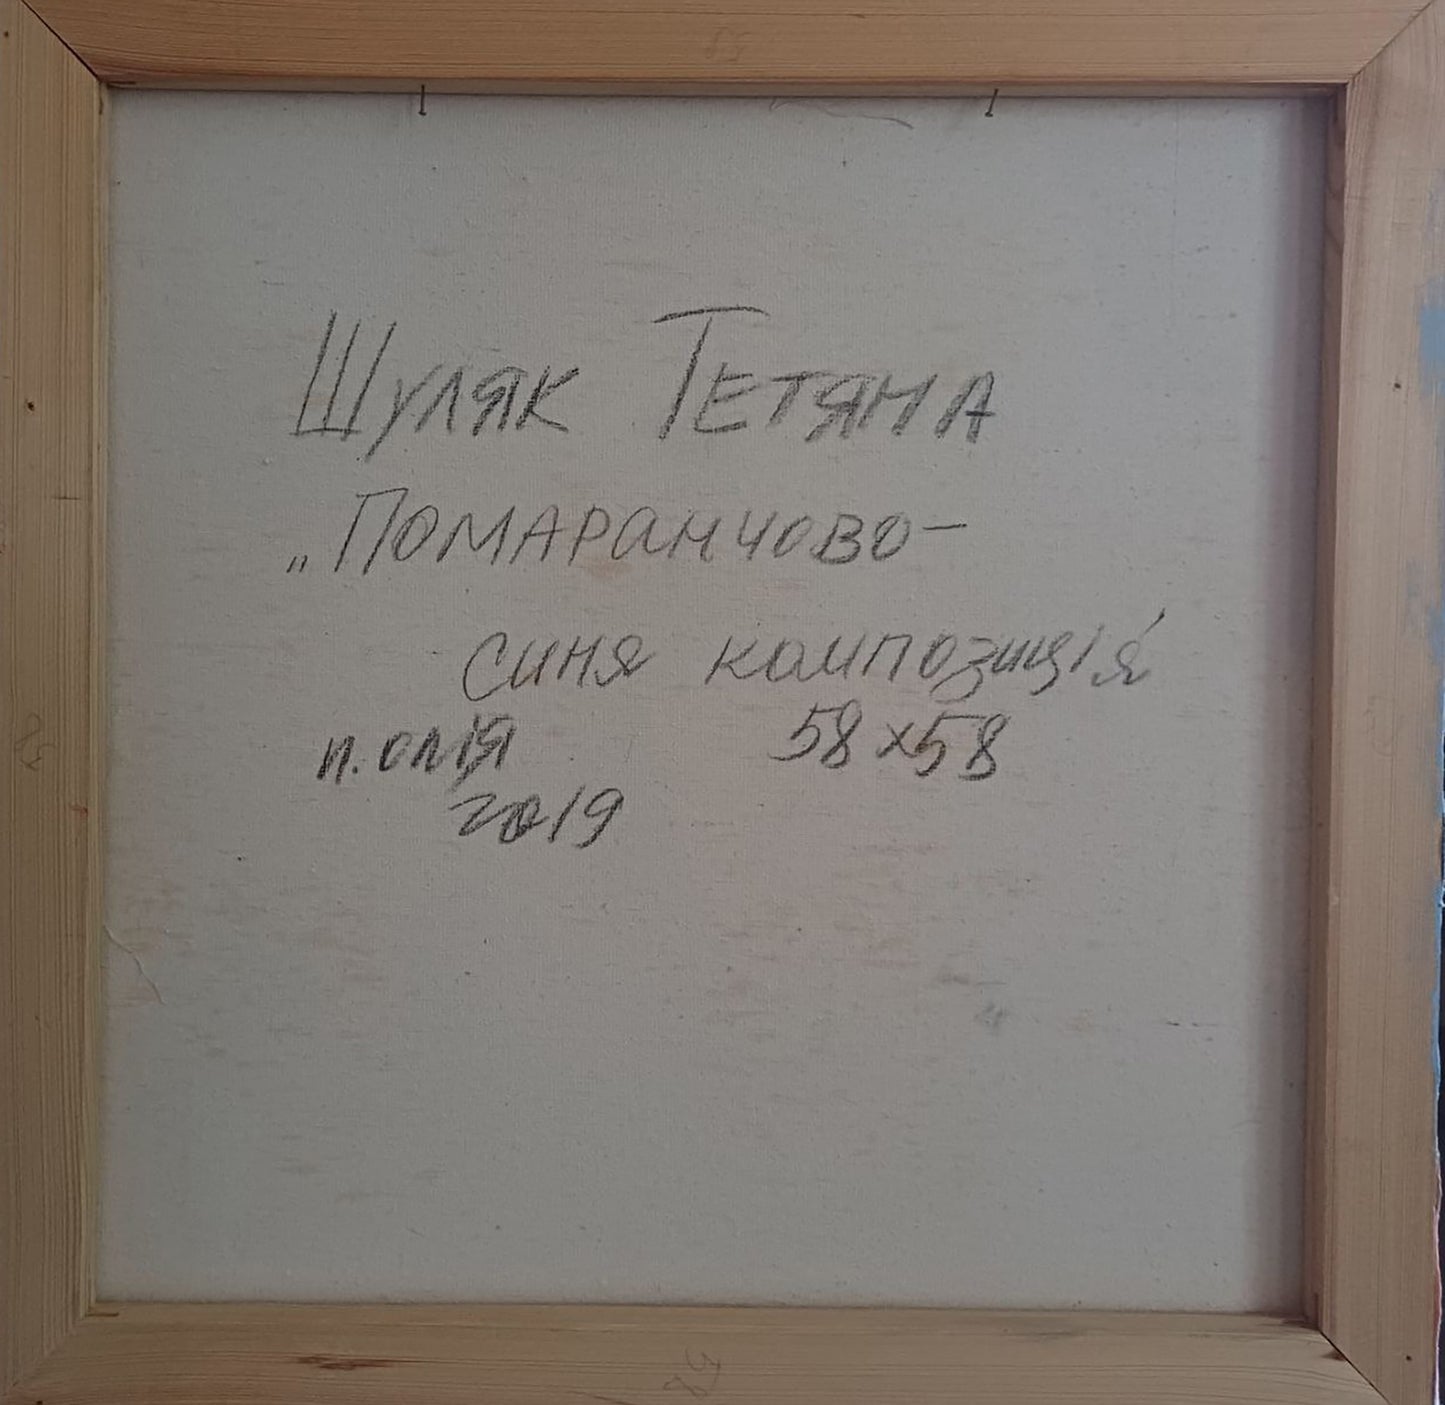 58
Шуляк Тетяна
„Помаранчово-
синя композиція"
п. олія 58х58
2019
58